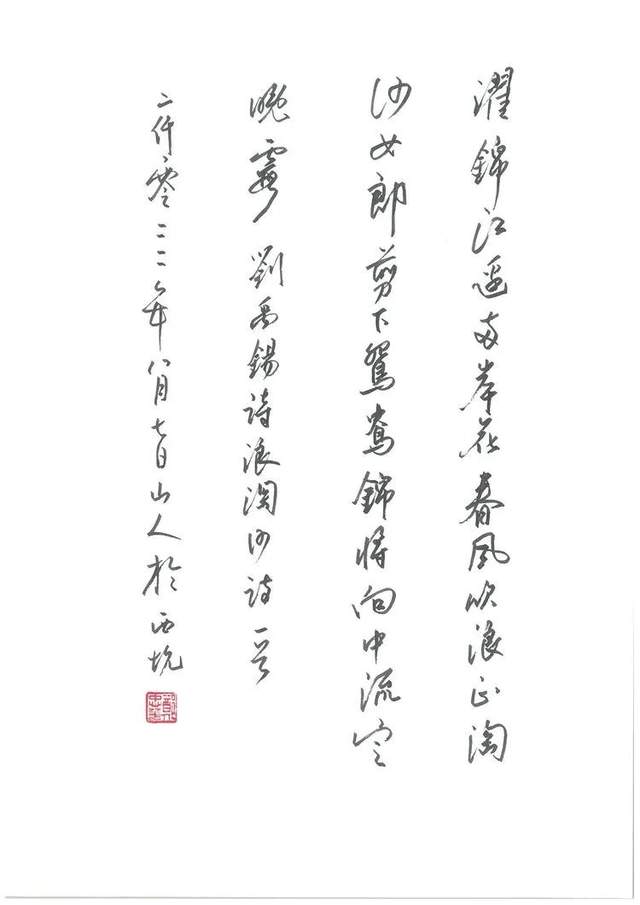 濯錦江邊兩岸花春風吹浪正淘
沙女郎剪下鴛鴦錦將向中流定
晚霞 劉禹錫詩浪淘沙詩一首
二仟零二二年八月七日山人於西坑